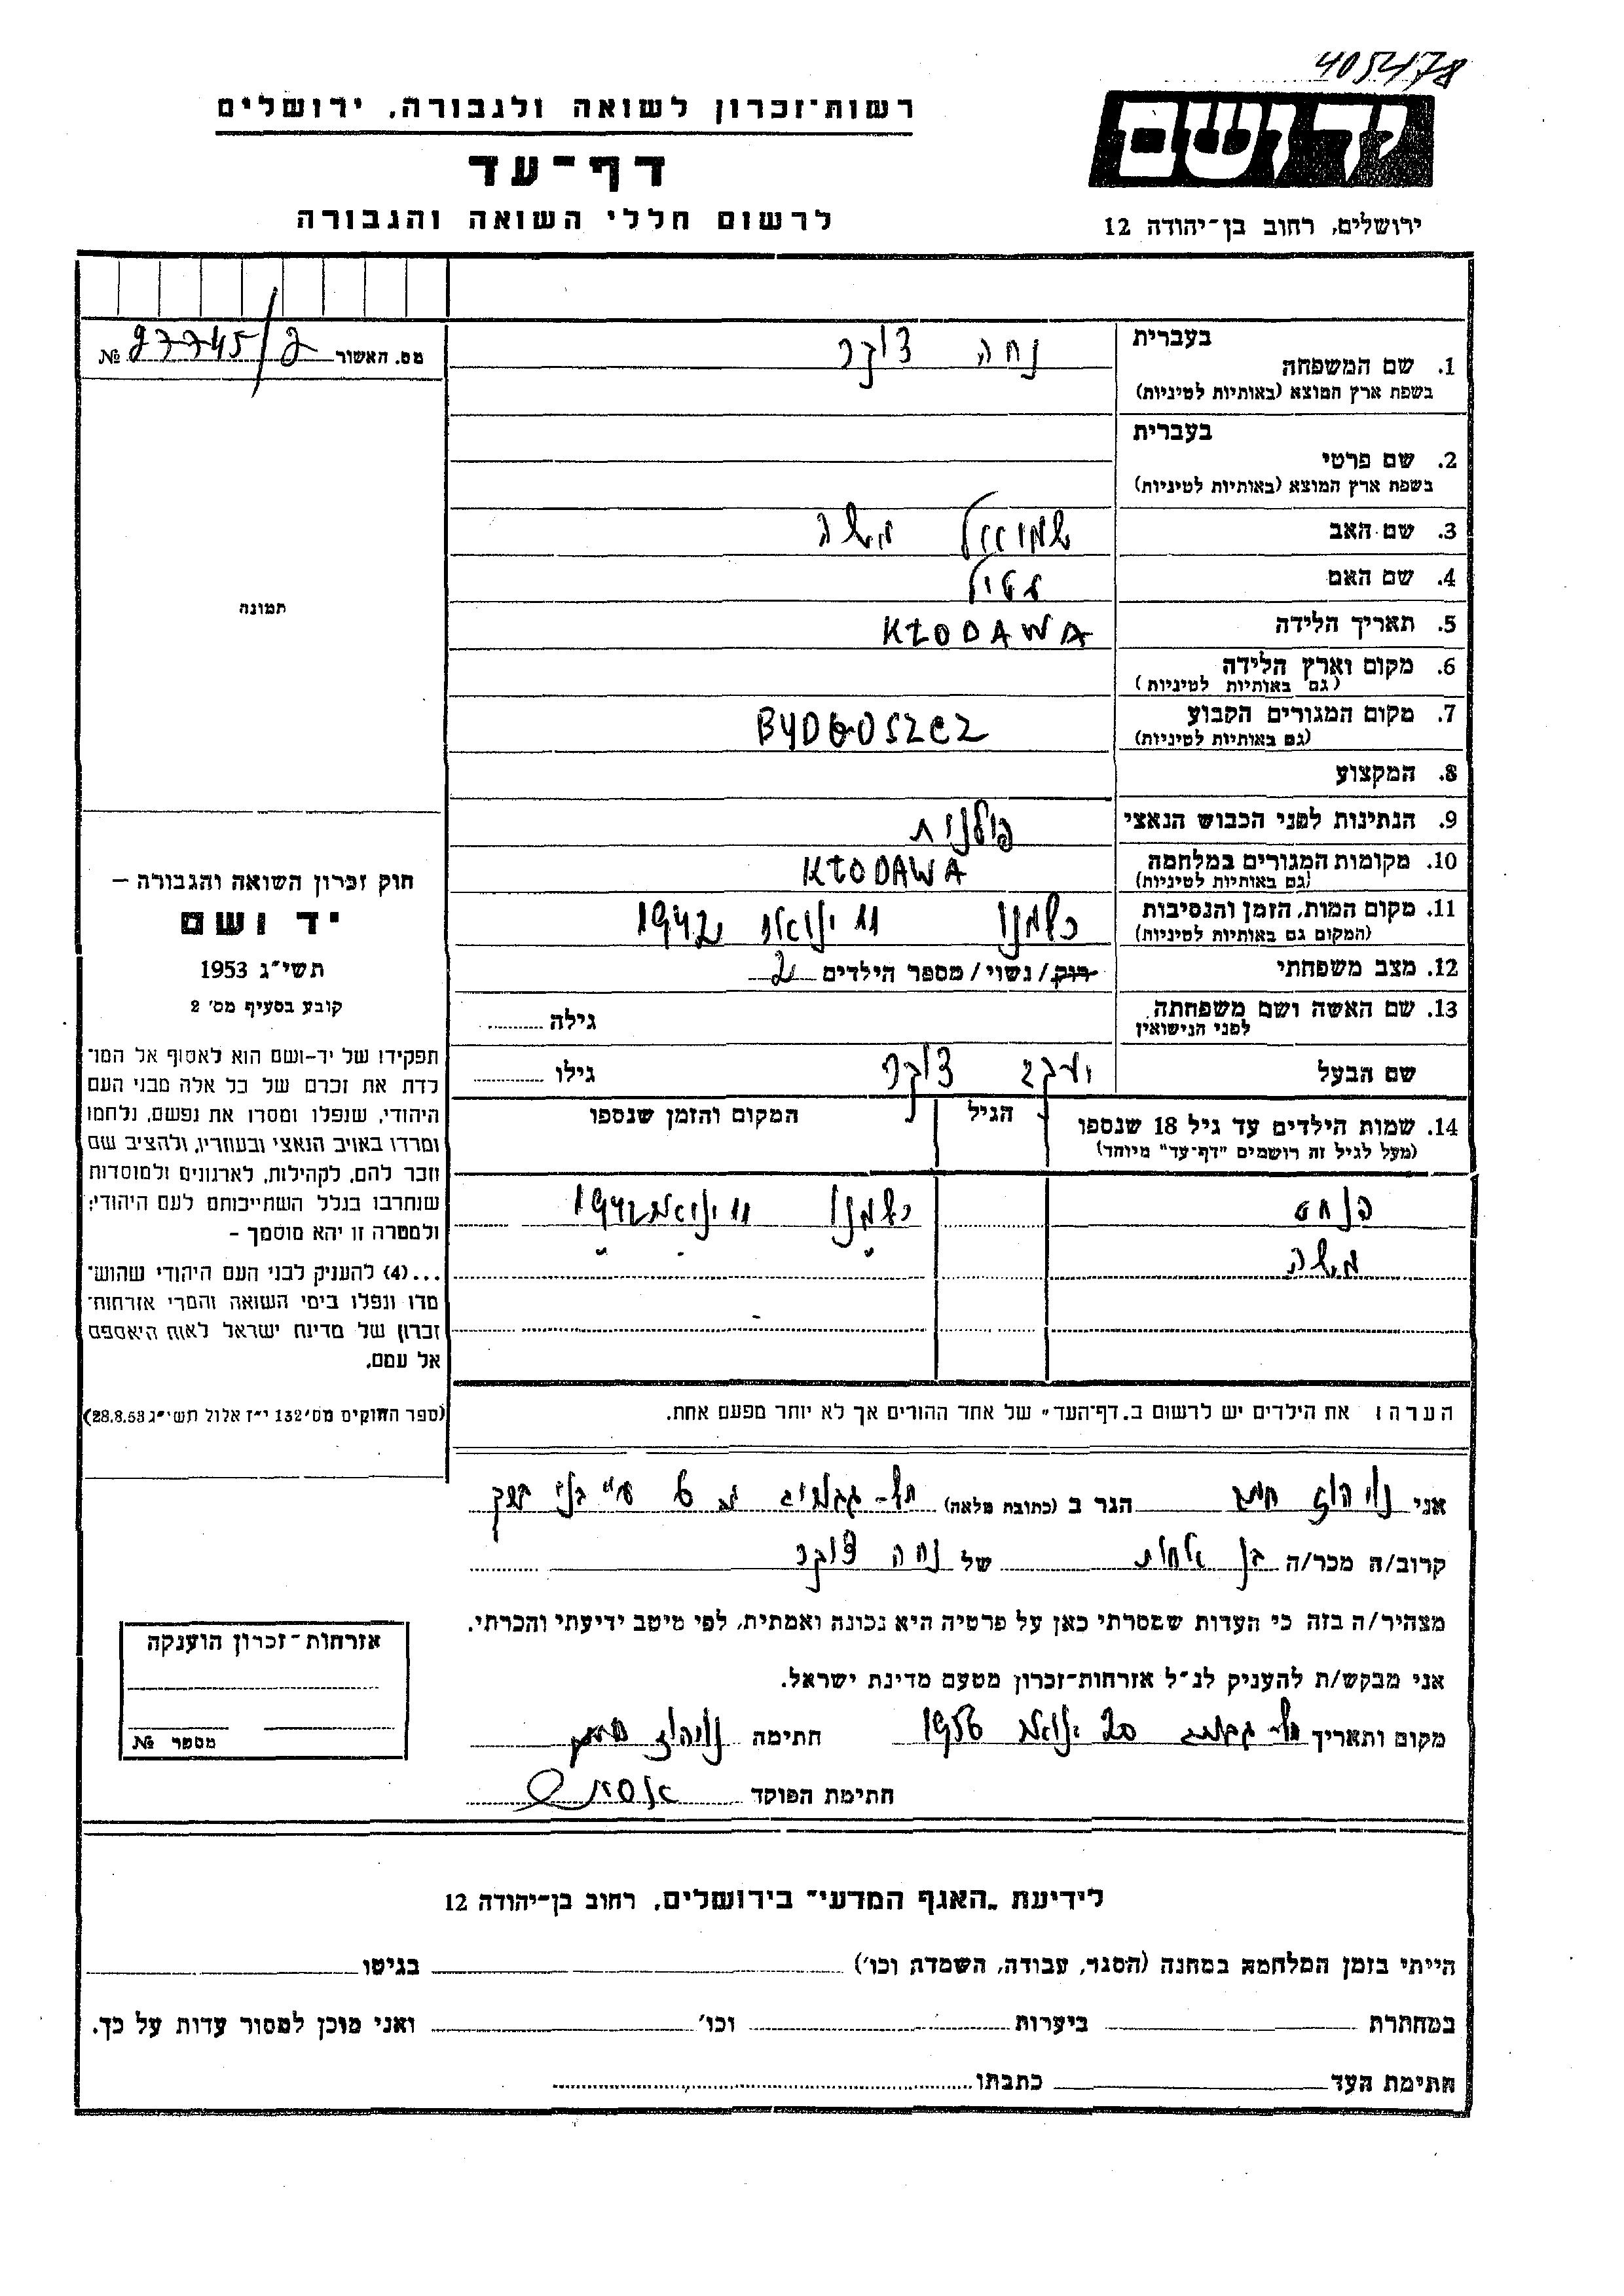 405478
יד ושם
רשות־זכרון לשואה ולגבורה, ירושלים
דף־עד
לרשום חללי השואה והגבורה
ירושלים, רחוב בן־יהודה 12
מס. האשור 27745/2 №
בעברית
1. שם המשפחה נחה צוקר
בשפת ארץ המוצא (באותיות לטיניות)
בעברית
2. שם פרטי
בשפת ארץ המוצא (באותיות לטיניות)
3. שם האב שמואל משה
4. שם האם
5. תאריך הלידה KŁODAWA
6. מקום וארץ הלידה
(גם באותיות לטיניות)
7. מקום המגורים הקבוע BYDGOSZCZ
(גם באותיות לטיניות)
8. המקצוע
9. הנתינות לפני הכבוש הנאצי פולנית
10. מקומות המגורים במלחמה KŁODAWA
(גם באותיות לטיניות)
11. מקום המות, הזמן והנסיבות כלמנו 11 ינואר 1942
(המקום גם באותיות לטיניות)
12. מצב משפחתי רווק / נשוי / מספר הילדים 2
13. שם האשה ושם משפחתה גילה
לפני הנישואין
שם הבעל יעקב צוקר גילו
14. שמות הילדים עד גיל 18 שנספו הגיל המקום והזמן שנספו
(מעל לגיל זה רושמים "דף־עד" מיוחד)
כלמנו 11 ינואר 1942
משה " . "
הערה: את הילדים יש לרשום ב„דף־העד" של אחד ההורים אך לא יותר מפעם אחת.
תמונה
חוק זכרון השואה והגבורה —
יד ושם
תשי"ג 1953
קובע בסעיף מס' 2
תפקידו של יד־ושם הוא לאסוף אל המו־
לדת את זכרם של כל אלה מבני העם
היהודי, שנפלו ומסרו את נפשם, נלחמו
ומרדו באויב הנאצי ובעוזריו, ולהציב שם
וזכר להם, לקהילות, לארגונים ולמוסדות
שנחרבו בגלל השתייכותם לעם היהודי;
ולמטרה זו יהא מוסמך —
...(4) להעניק לבני העם היהודי שהוש־
מדו ונפלו בימי השואה והמרי אזרחות־
זכרון של מדינת ישראל לאות היאספם
אל עמם.
(ספר החוקים מס' 132 י"ז אלול תשי"ג 28.8.53)
אני הגר ב (כתובת מלאה) 6 ע"י בני ברק
קרוב/ה מכר/ה בן אחות של נחה צוקר
מצהיר/ה בזה כי העדות שמסרתי כאן על פרטיה היא נכונה ואמתית, לפי מיטב ידיעתי והכרתי.
אני מבקש/ת להעניק לנ"ל אזרחות־זכרון מטעם מדינת ישראל.
מקום ותאריך 20 ינואר 1956 חתימה
חתימת הפוקד
אזרחות־זכרון הוענקה
מספר №
לידיעת „האגף המדעי" בירושלים, רחוב בן־יהודה 12
הייתי בזמן המלחמה במחנה (הסגר, עבודה, השמדה וכו') בגיטו
במחתרת ביערות וכו' ואני מוכן למסור עדות על כך.
חתימת העד כתבתו